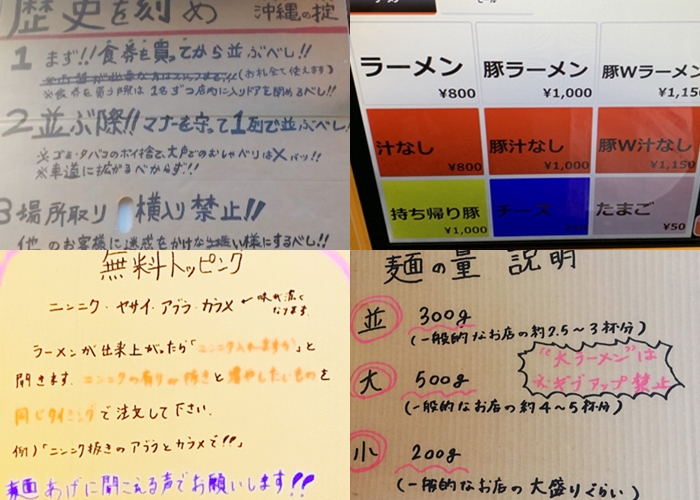 歴史を刻め 沖縄の掟
1 まず!!食券を買ってから並ぶべし!!
(お札全て使えます)
※食券を買う際は1名ずつ店内に入りドアを閉めるべし!!
2 並ぶ際!!マナーを守って1列で並ぶべし
※ゴミ・タバコのポイ捨て、大声でのおしゃべりは×バツ!!
※車道に拡がるべからず!!
3 場所取り 横入り禁止!!
他のお客様に迷惑をかけない様にするべし!!
ラーメン ¥800
豚ラーメン ¥1,000
豚Wラーメン ¥1,150
汁なし ¥800
豚汁なし ¥1,000
豚W汁なし ¥1,150
持ち帰り豚 ¥1,000
チーズ
たまご ¥50
無料トッピング
ニンニク・ヤサイ・アブラ・カラメ ←味が濃くなります。
ラーメンが出来上がったら「ニンニク入れますか」と
聞きます。ニンニクの有りor抜きと増やしたいものを
同じタイミングで注文して下さい。
例)「ニンニク抜きのアブラとカラメで!!」
麺あげに聞こえる声でお願いします!!
麺の量 説明
並 300g
(一般的なお店の約2.5~3杯分)
"大ラーメン"は
※ギブアップ禁止
大 500g
(一般的なお店の約4~5杯分)
小 200g
(一般的なお店の大盛りぐらい)